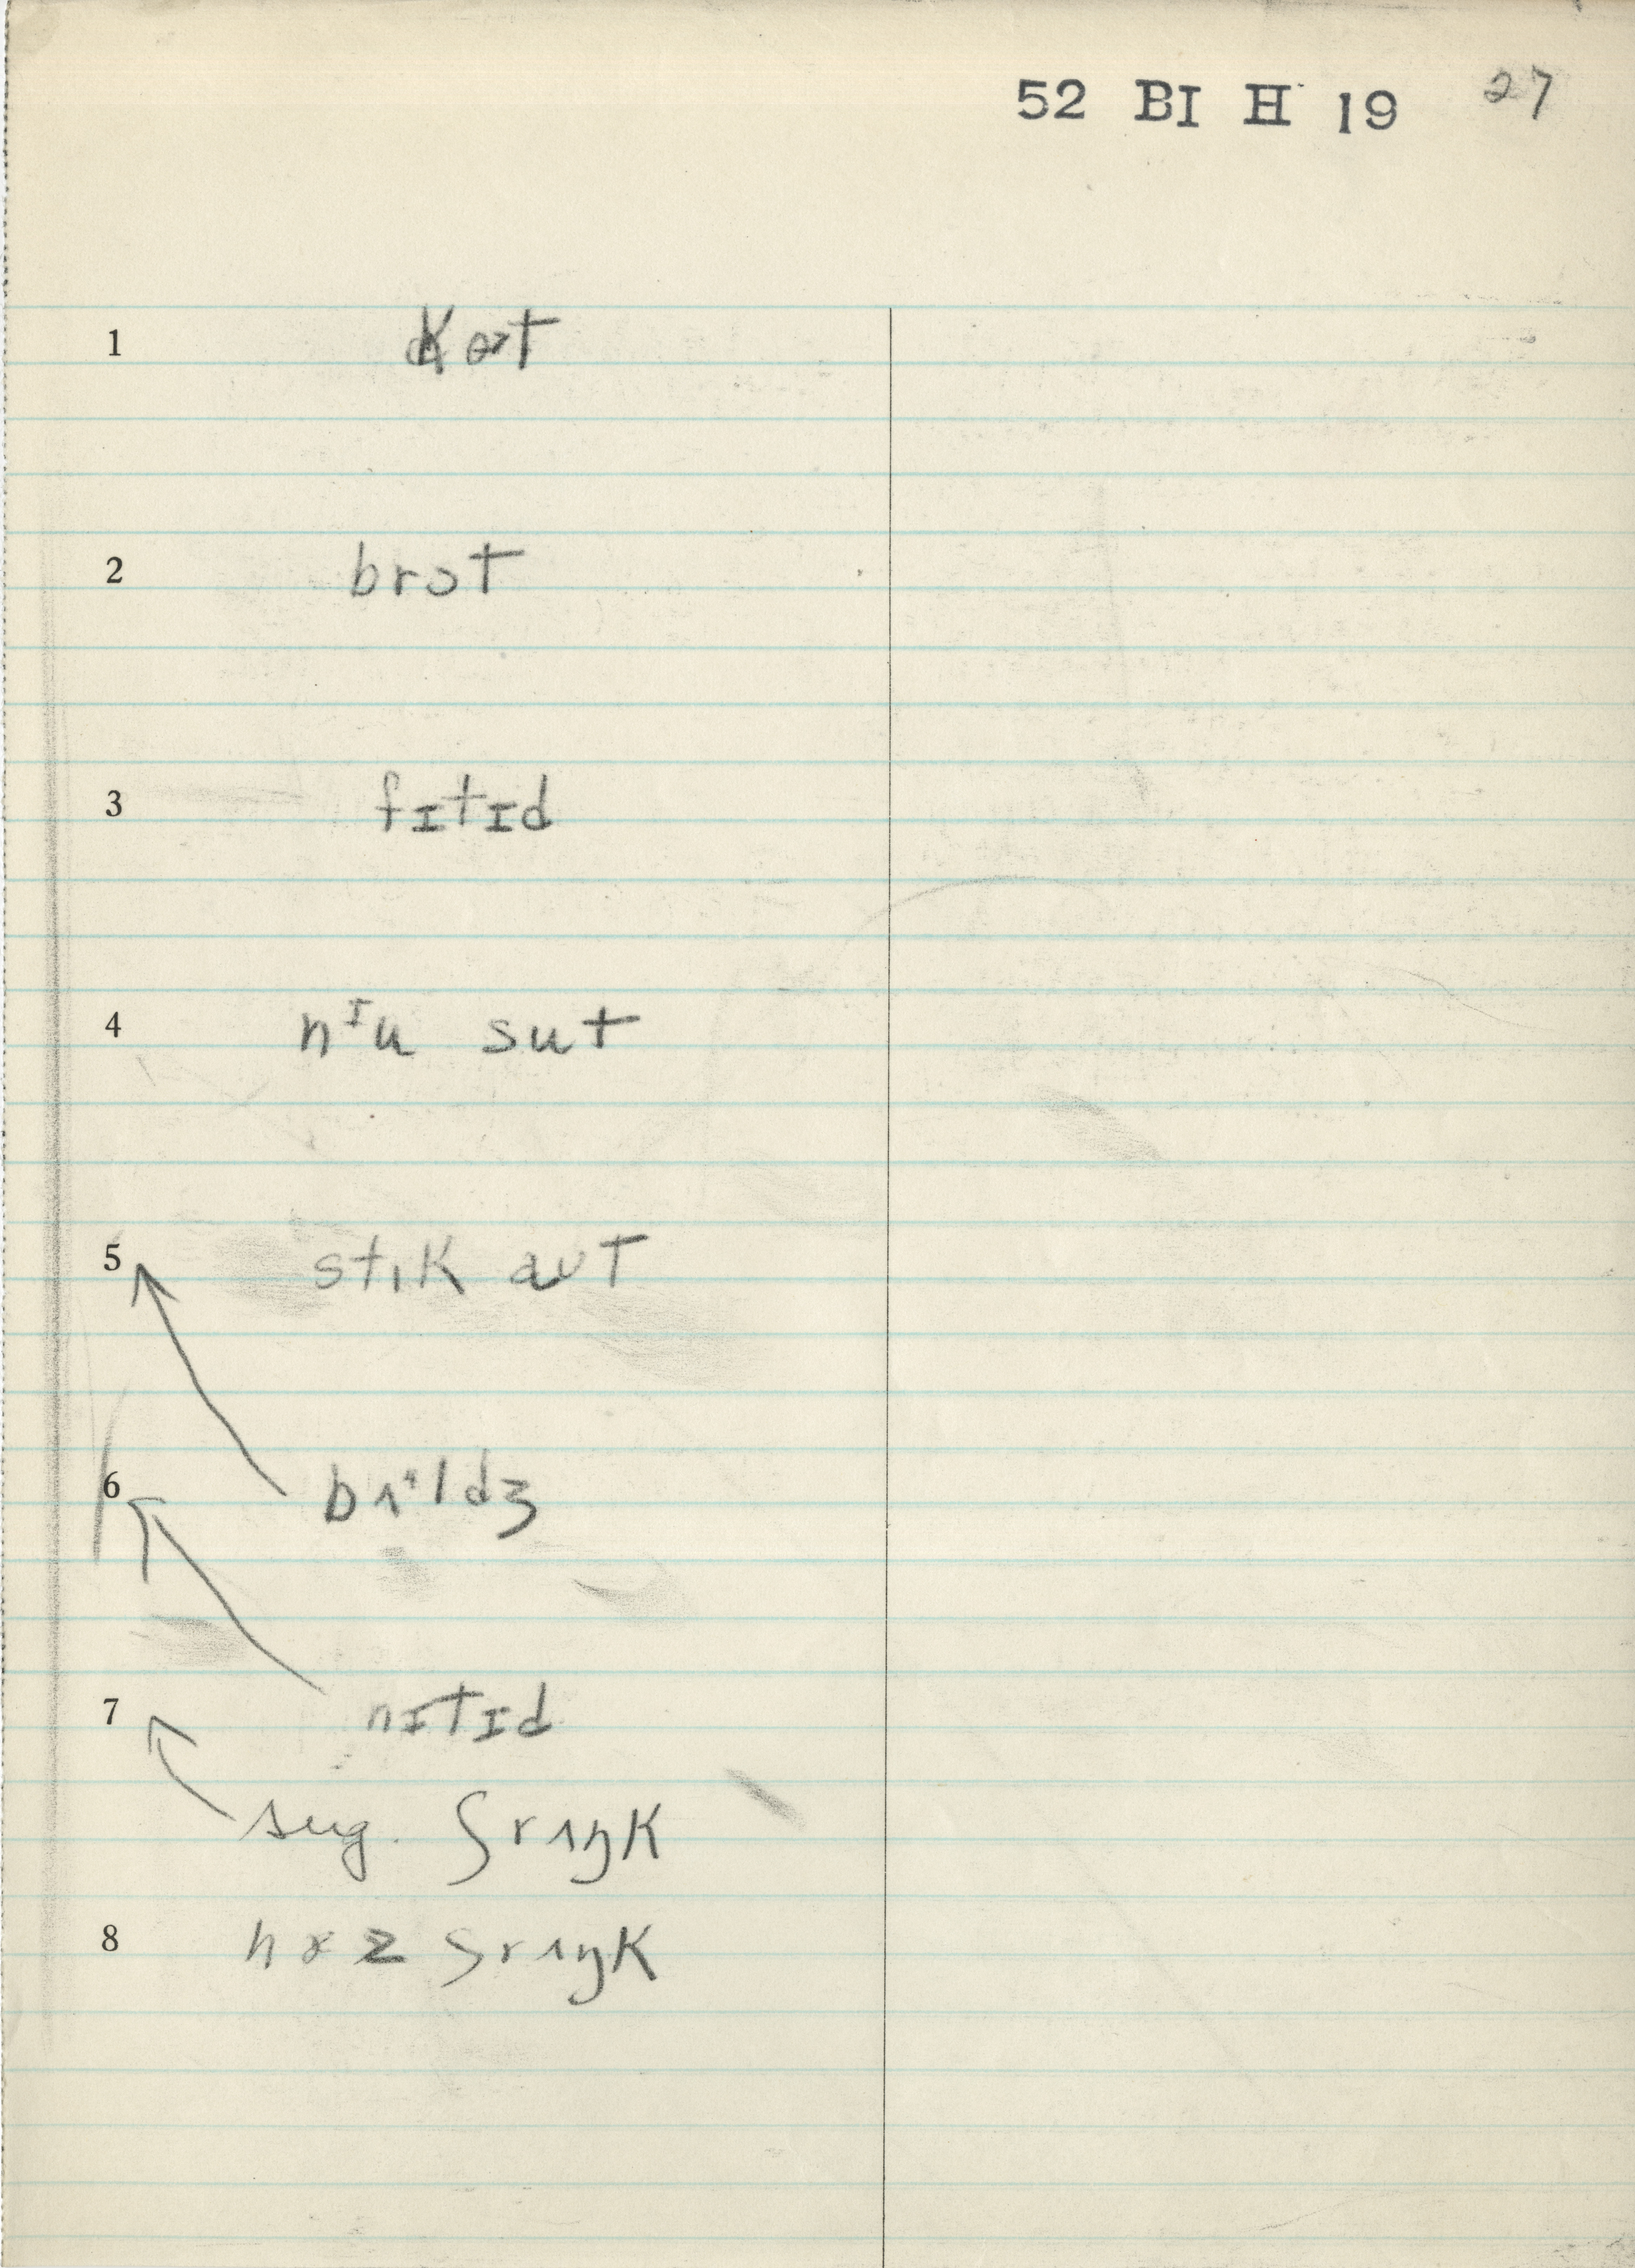 52 BI H 19 27
1 kɔət
2 brɔt
3 fɪtɪd
4 nᶦu sut
5 stɪk aʊt
6 bɪᵊldʒ
7 nɪtɪd
sug. ʃrɪŋk
8 hɤz ʃrɪŋk